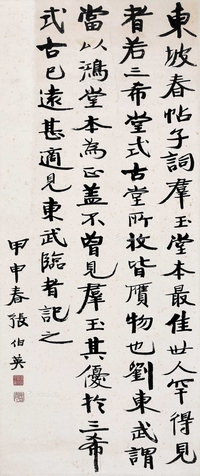 東坡春帖子詞羣玉堂本最佳世人罕得見
者若三希堂式古堂所收皆贋物也劉東武謂
當以鴻堂本為正蓋不曾見羣玉其優於三希
式古已遠甚適見東武臨者記之
甲申春張伯英